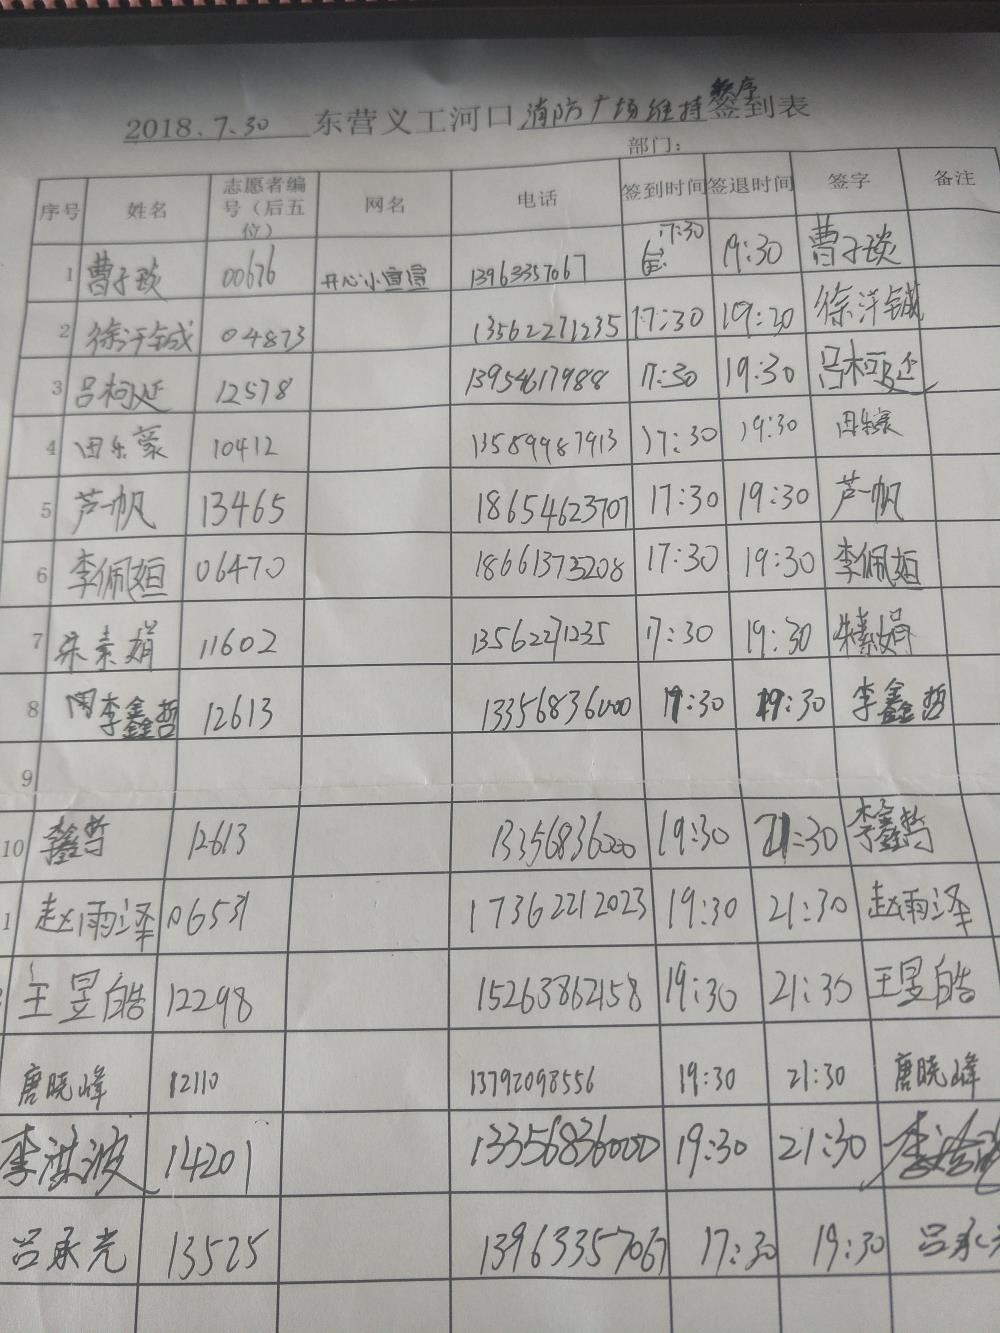 2018.7.30 东营义工河口消防广场维持秩序签到表
部门：
序号 姓名 志愿者编号（后五位） 网名 电话 签到时间 签退时间 签字 备注
1 曹子琰 00676 开心小萱萱 13963357067 17:30 19:30 曹子琰
2 徐洋铖 04873 13562271235 17:30 19:30 徐洋铖
3 吕柯延 12578 13954617988 17:30 19:30 吕柯延
4 田乐豪 10412 13589987913 17:30 19:30 田乐豪
5 芦一帆 13465 18654623707 17:30 19:30 芦一帆
6 李佩姮 06470 18661373208 17:30 19:30 李佩姮
7 朱素娟 11602 13562271235 17:30 19:30 朱素娟
8 李鑫哲 12613 13356836000 17:30 19:30 李鑫哲
9
10 李鑫哲 12613 13356836000 19:30 21:30 李鑫哲
1 赵雨泽 06531 17362212023 19:30 21:30 赵雨泽
王昱皓 12298 15263862158 19:30 21:30 王昱皓
唐晓峰 12110 13792098556 19:30 21:30 唐晓峰
李洪波 14201 13356836000 19:30 21:30
吕承光 13525 13963357067 17:30 19:30 吕承